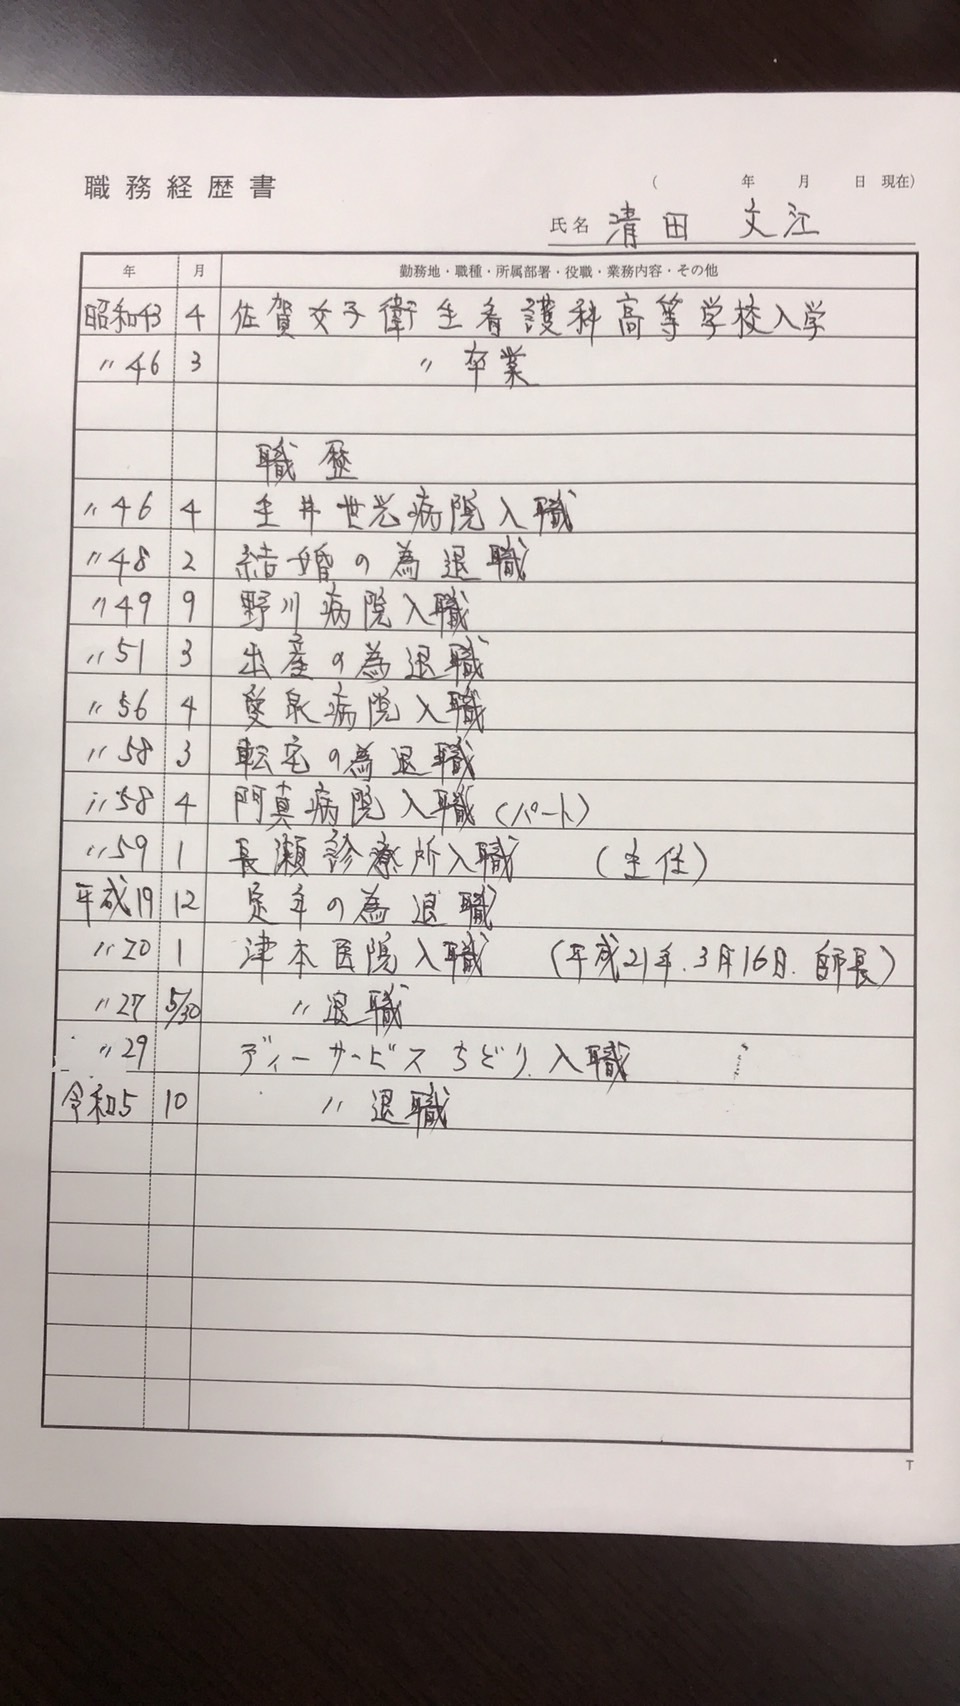 職務経歴書
(　年　月　日 現在)
氏名 清田 文江
年 月 勤務地・職種・所属部署・役職・業務内容・その他
昭和43 4 佐賀女子衛生看護科高等学校入学
〃46 3 〃 卒業
職歴
〃46 4 圭井世光病院入職
〃48 2 結婚の為退職
〃49 9 野川病院入職
〃51 3 出産の為退職
〃56 4 愛泉病院入職
〃58 3 転宅の為退職
〃58 4 阿真病院入職(パート)
〃59 1 長瀬診療所入職 (主任)
平成19 12 定年の為退職
〃20 1 津本医院入職 (平成21年.3月16日.師長)
〃27 5/30 〃退職
〃29 ディーサービスちどり.入職
令和5 10 〃 退職
T